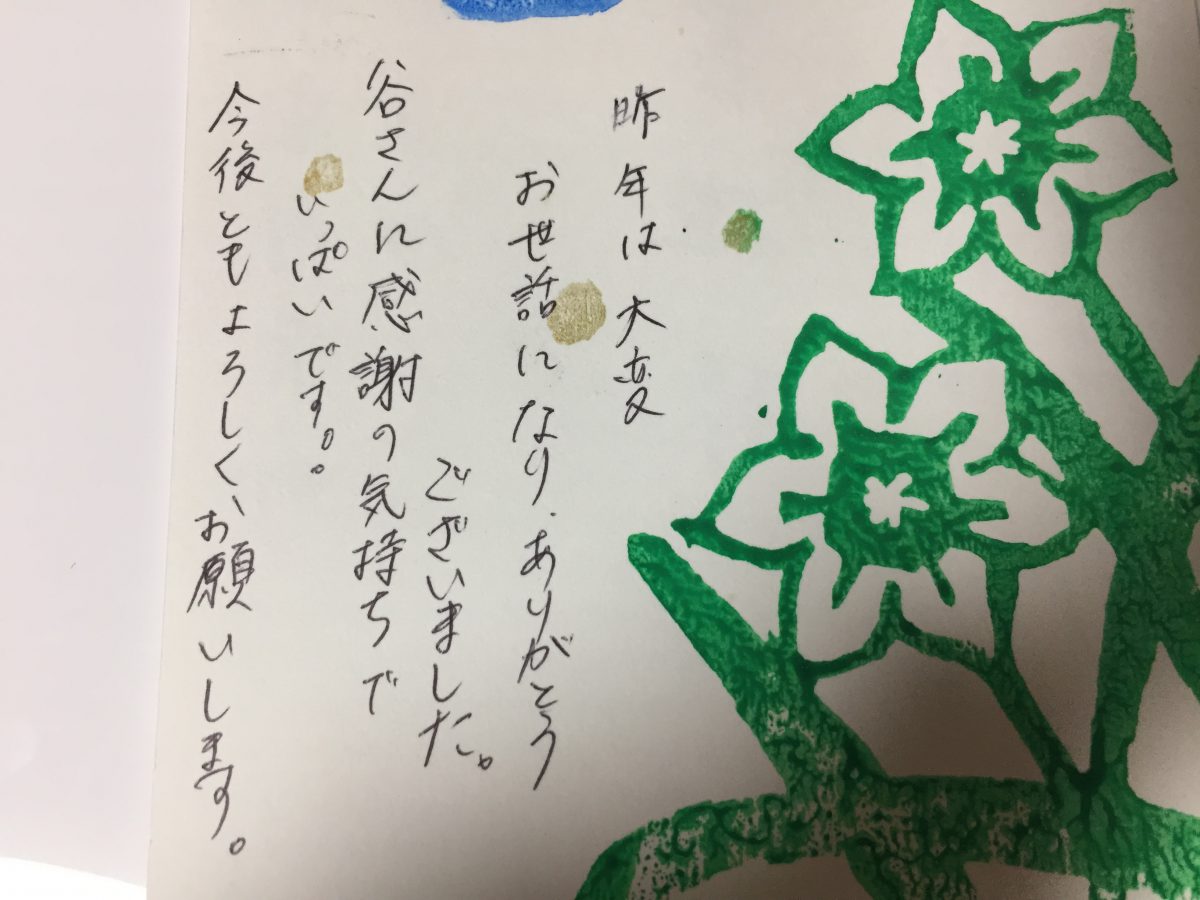 昨年は大変
お世話になり、ありがとう
ございました。
谷さんに感謝の気持ちで
いっぱいです。。
今後ともよろしく、お願いします。